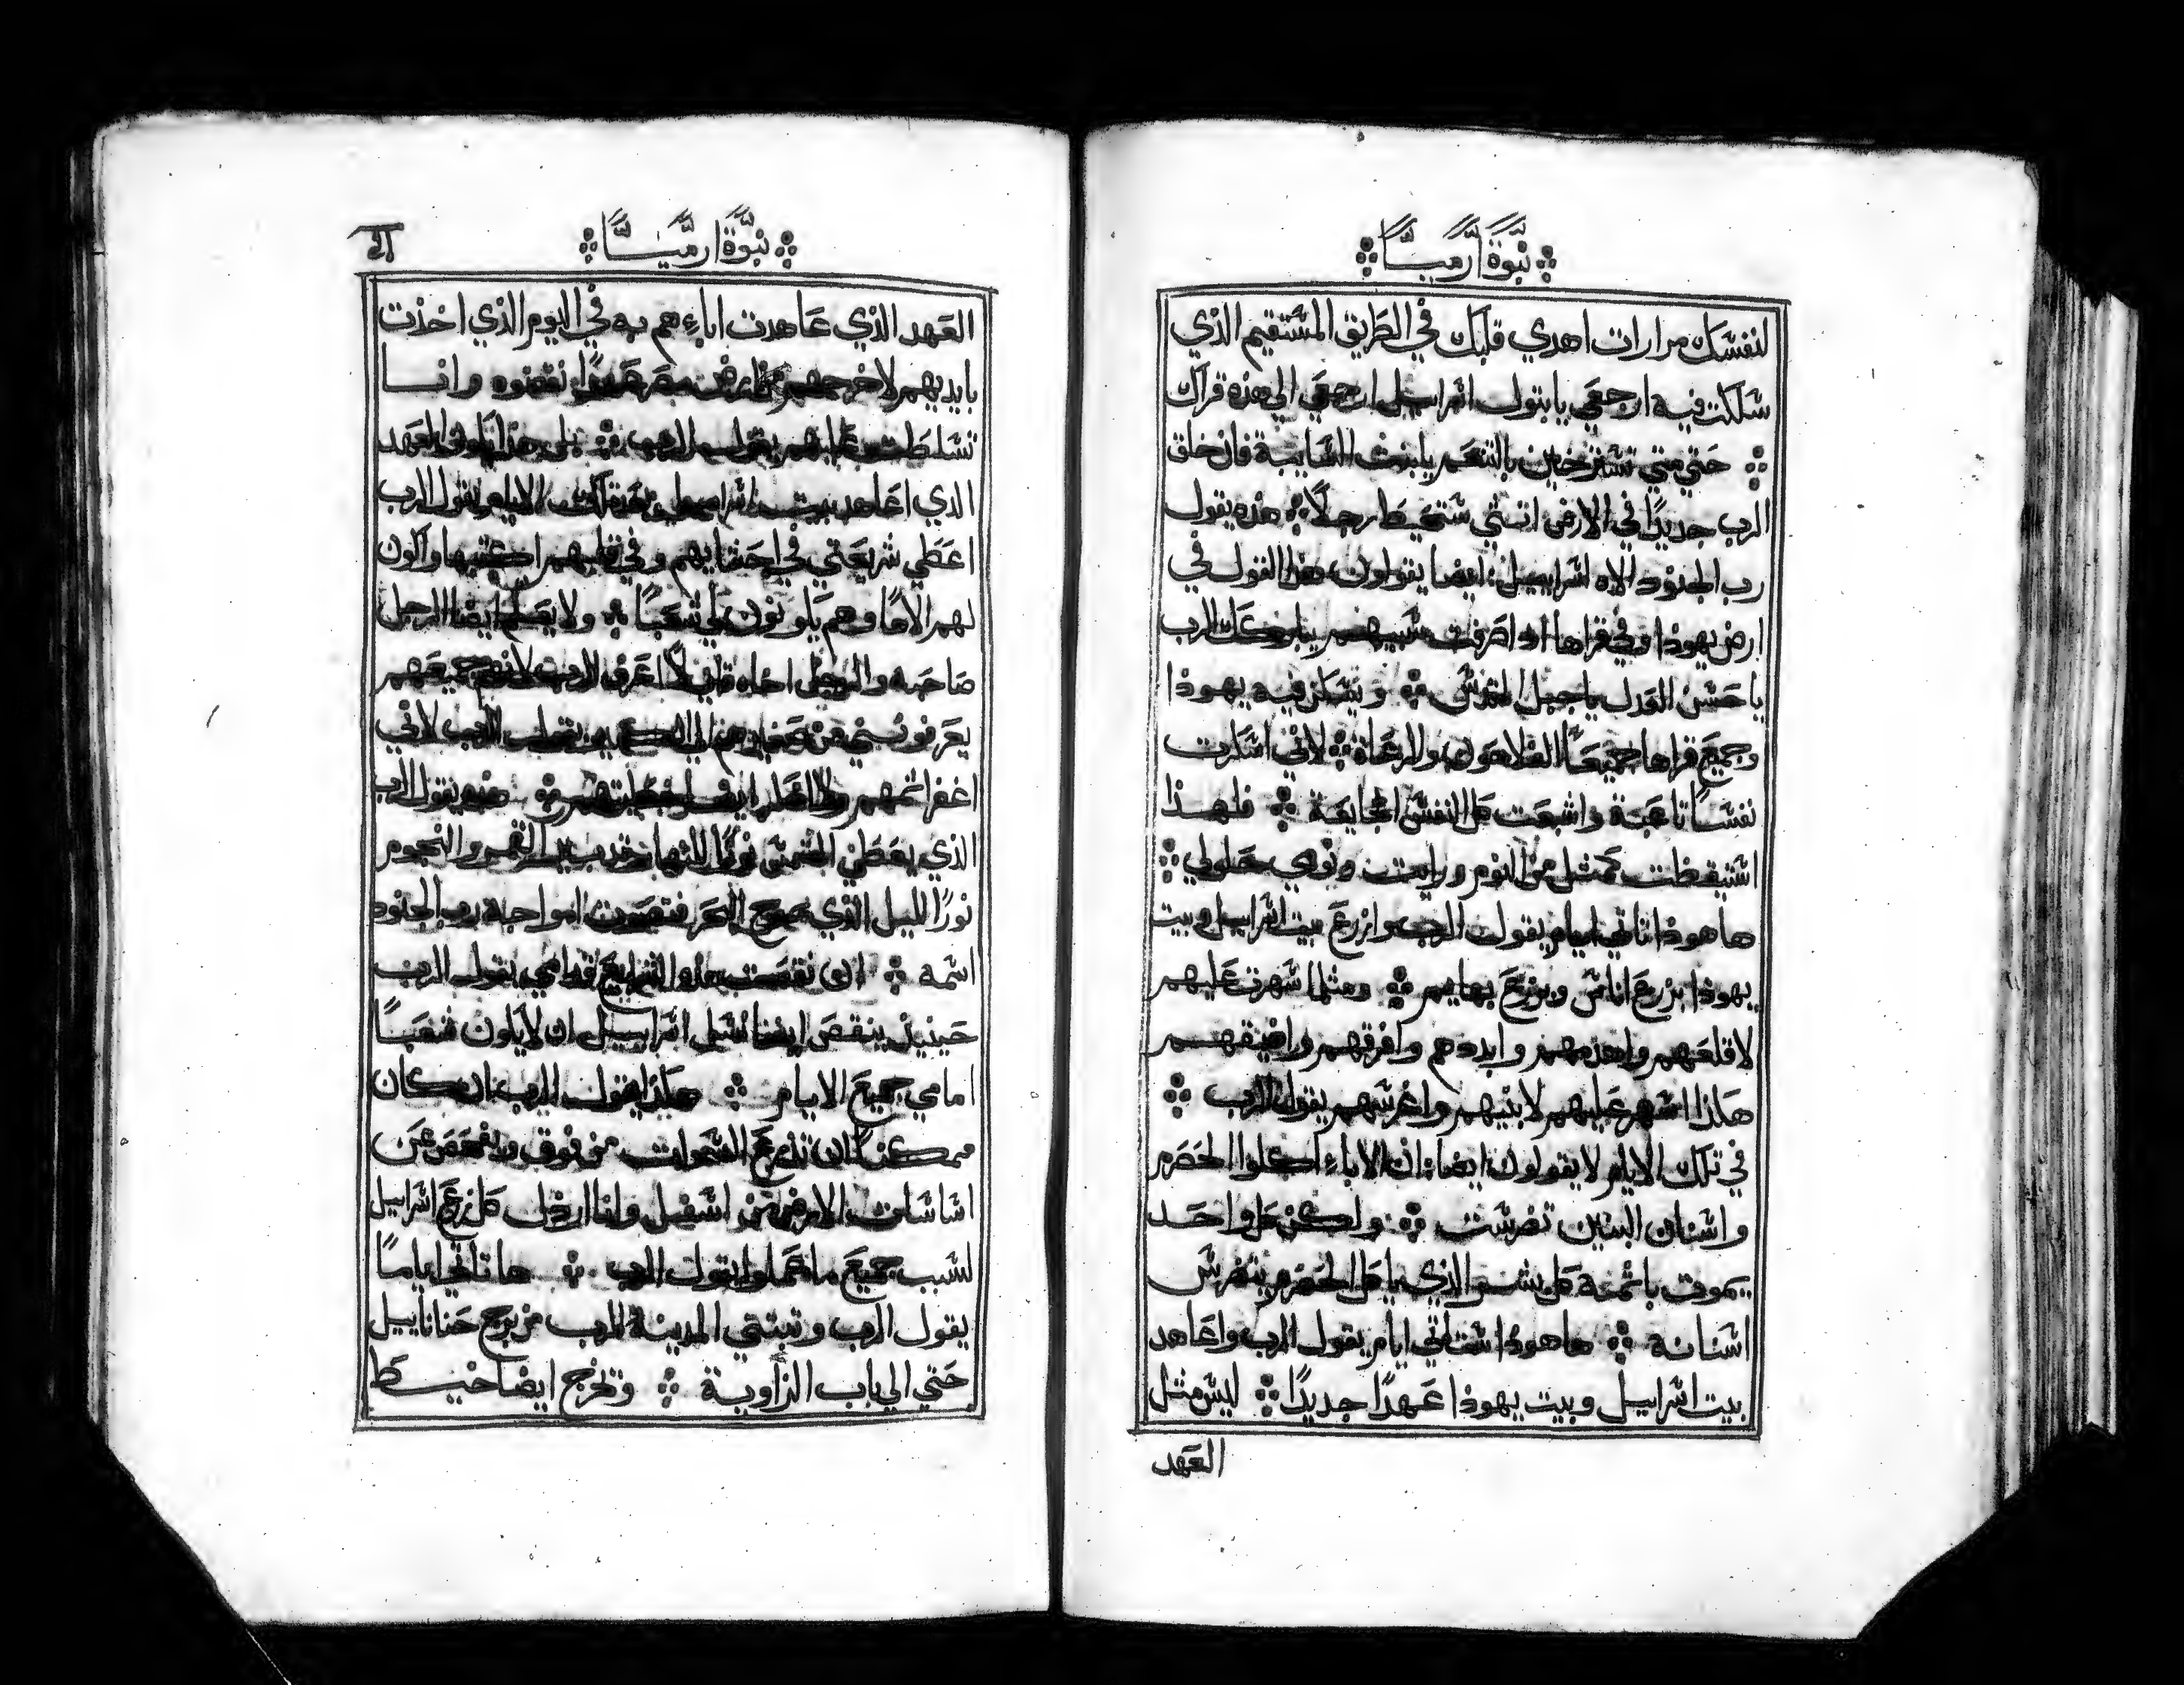 نبوة ارميا
لنفسك مرارات اهدي قلبك في الطريق المستقيم الذي
سلكت فيه ارجعي يا بتول اسراييل ارجعي الي هذه قراك
حتي متي تسترخين بالتنعم يا بنت السايبة فان خلق
الرب جديدًا في الارض انثي ستحيط رجلاً هذه يقول
رب الجنود الاه اسراييل ايضا يقولون هذا القول في
ارض يهوذا وفي قراها اذا صرفت سبيهم يباركك الرب
يا حسن العدل يا جبل القدس ويسكن فيه يهوذا
وجميع قراها جميعًا الفلاحون والرعاة لاني اسكرت
نفسًا تاعبة واشبعت كل النفس الجايعة فلهذا
استيقظت كمثل من النوم ورايت ونومي حلو لي
ها هوذا تاتي ايام يقول الرب وازرع بيت اسراييل وبيت
يهوذا بزرع اناس وبزرع بهايم ومثلما سهرت عليهم
لاقلعهم واهدمهم وابددهم وافرقهم واضيقهم
هكذا اسهر عليهم لابنيهم واغرسهم يقول الرب
في تلك الايام لا يقولون ايضا ان الاباء اكلوا الحصرم
واسنان البنين تضرست ولكن كل واحد
يموت باثمه كل بشر الذي ياكل الحصرم يتضرس
اسنانه ها هوذا ستاتي ايام يقول الرب واعاهد
بيت اسراييل وبيت يهوذا عهدًا جديدًا ليس مثل
العهد
نبوة ارميا
العهد الذي عاهدت اباءهم به في اليوم الذي اخذت
بايديهم لاخرجهم من ارض مصر نقضوه وانا
تسلطت عليهم يقول الرب بل هذا يكون العهد
الذي اعاهد بيت اسراييل بعد تلك الايام يقول الرب
اعطي شريعتي في احشايهم وفي قلبهم اكتبها واكون
لهم الاهًا وهم يكونون لي شعبًا ولا يعلم ايضا الرجل
صاحبه والرجل اخاه قايلاً اعرف الرب لانهم جميعهم
يعرفونني من صغيرهم الي الكبير يقول الرب لاني
اغفر اثمهم ولا اذكر ايضا خطيتهم هذه يقول الرب
الذي يعطي الشمس نورًا للنهار وترتيب القمر والنجوم
نورًا لليل الذي يموج البحر فتصوت امواجه رب الجنود
اسمه ان نقصت هذه الشرايع قدامي يقول الرب
حينيذ ينقص ايضا نسل اسراييل ان لا يكون شعبًا
امامي جميع الايام هكذا يقول الرب ان كان
ممكن ان تذرع السموات من فوق ويفحص عن
اساسات الارض من اسفل وانا ارذل كل زرع اسراييل
لسبب جميع ما عملوا يقول الرب ها تاتي ايامًا
يقول الرب وتبتني المدينة للرب من برج حناناييل
حتي الي باب الزاوية وتخرج ايضا خيط